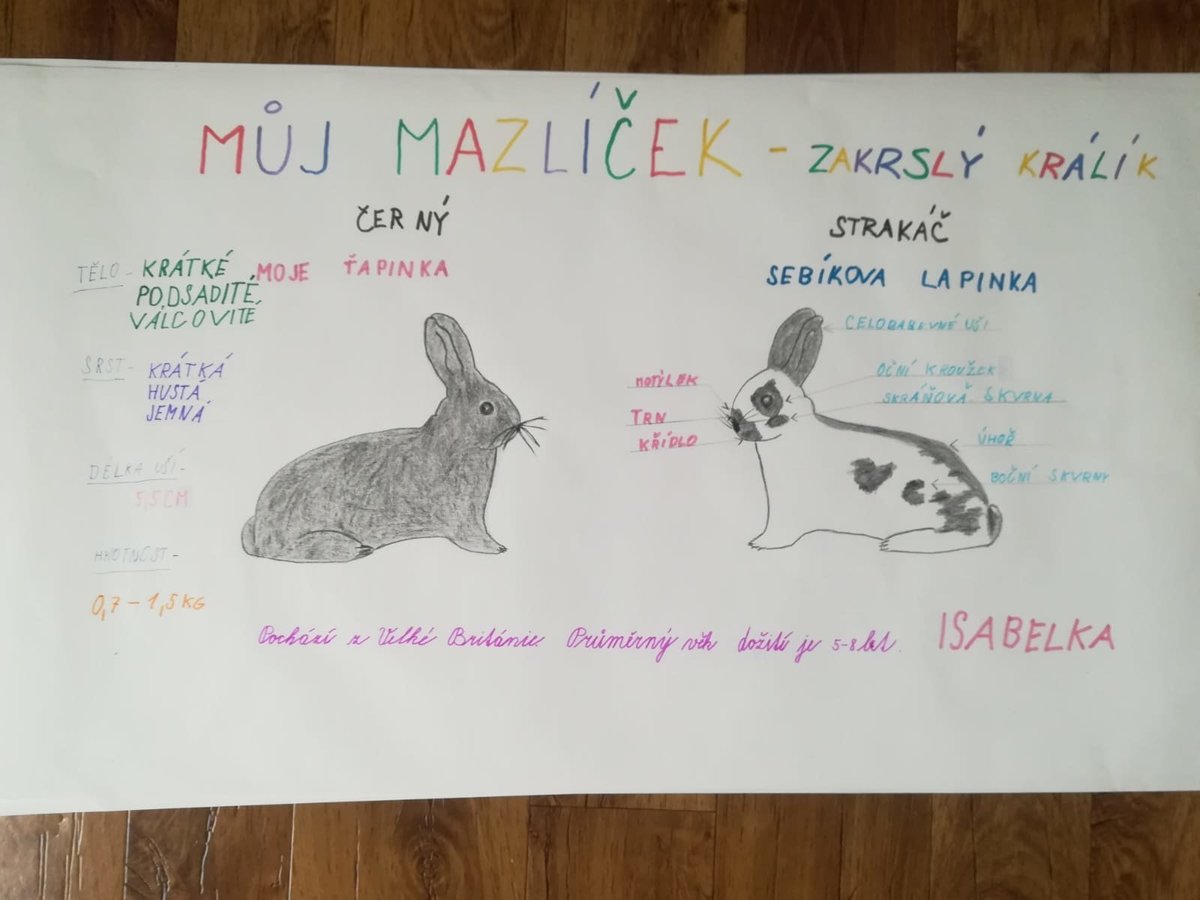 MŮJ MAZLÍČEK - ZAKRSLÝ KRÁLÍK
ČERNÝ
MOJE ŤAPINKA
TĚLO - KRÁTKÉ
PODSADITÉ,
VÁLCOVITÉ
SRST - KRÁTKÁ
HUSTÁ
JEMNÁ
DÉLKA UŠÍ -
5,5 CM
HMOTNOST -
0,7 - 1,5 KG
STRAKÁČ
SEBÍKOVA LAPINKA
CELOBAREVNÉ UŠI
OČNÍ KROUŽEK
SKRÁŇOVÁ SKVRNA
ÚHOŘ
BOČNÍ SKVRNY
MOTÝLEK
TRN
KŘÍDLO
Pochází z Velké Británie. Průměrný věk dožití je 5-8 let.
ISABELKA